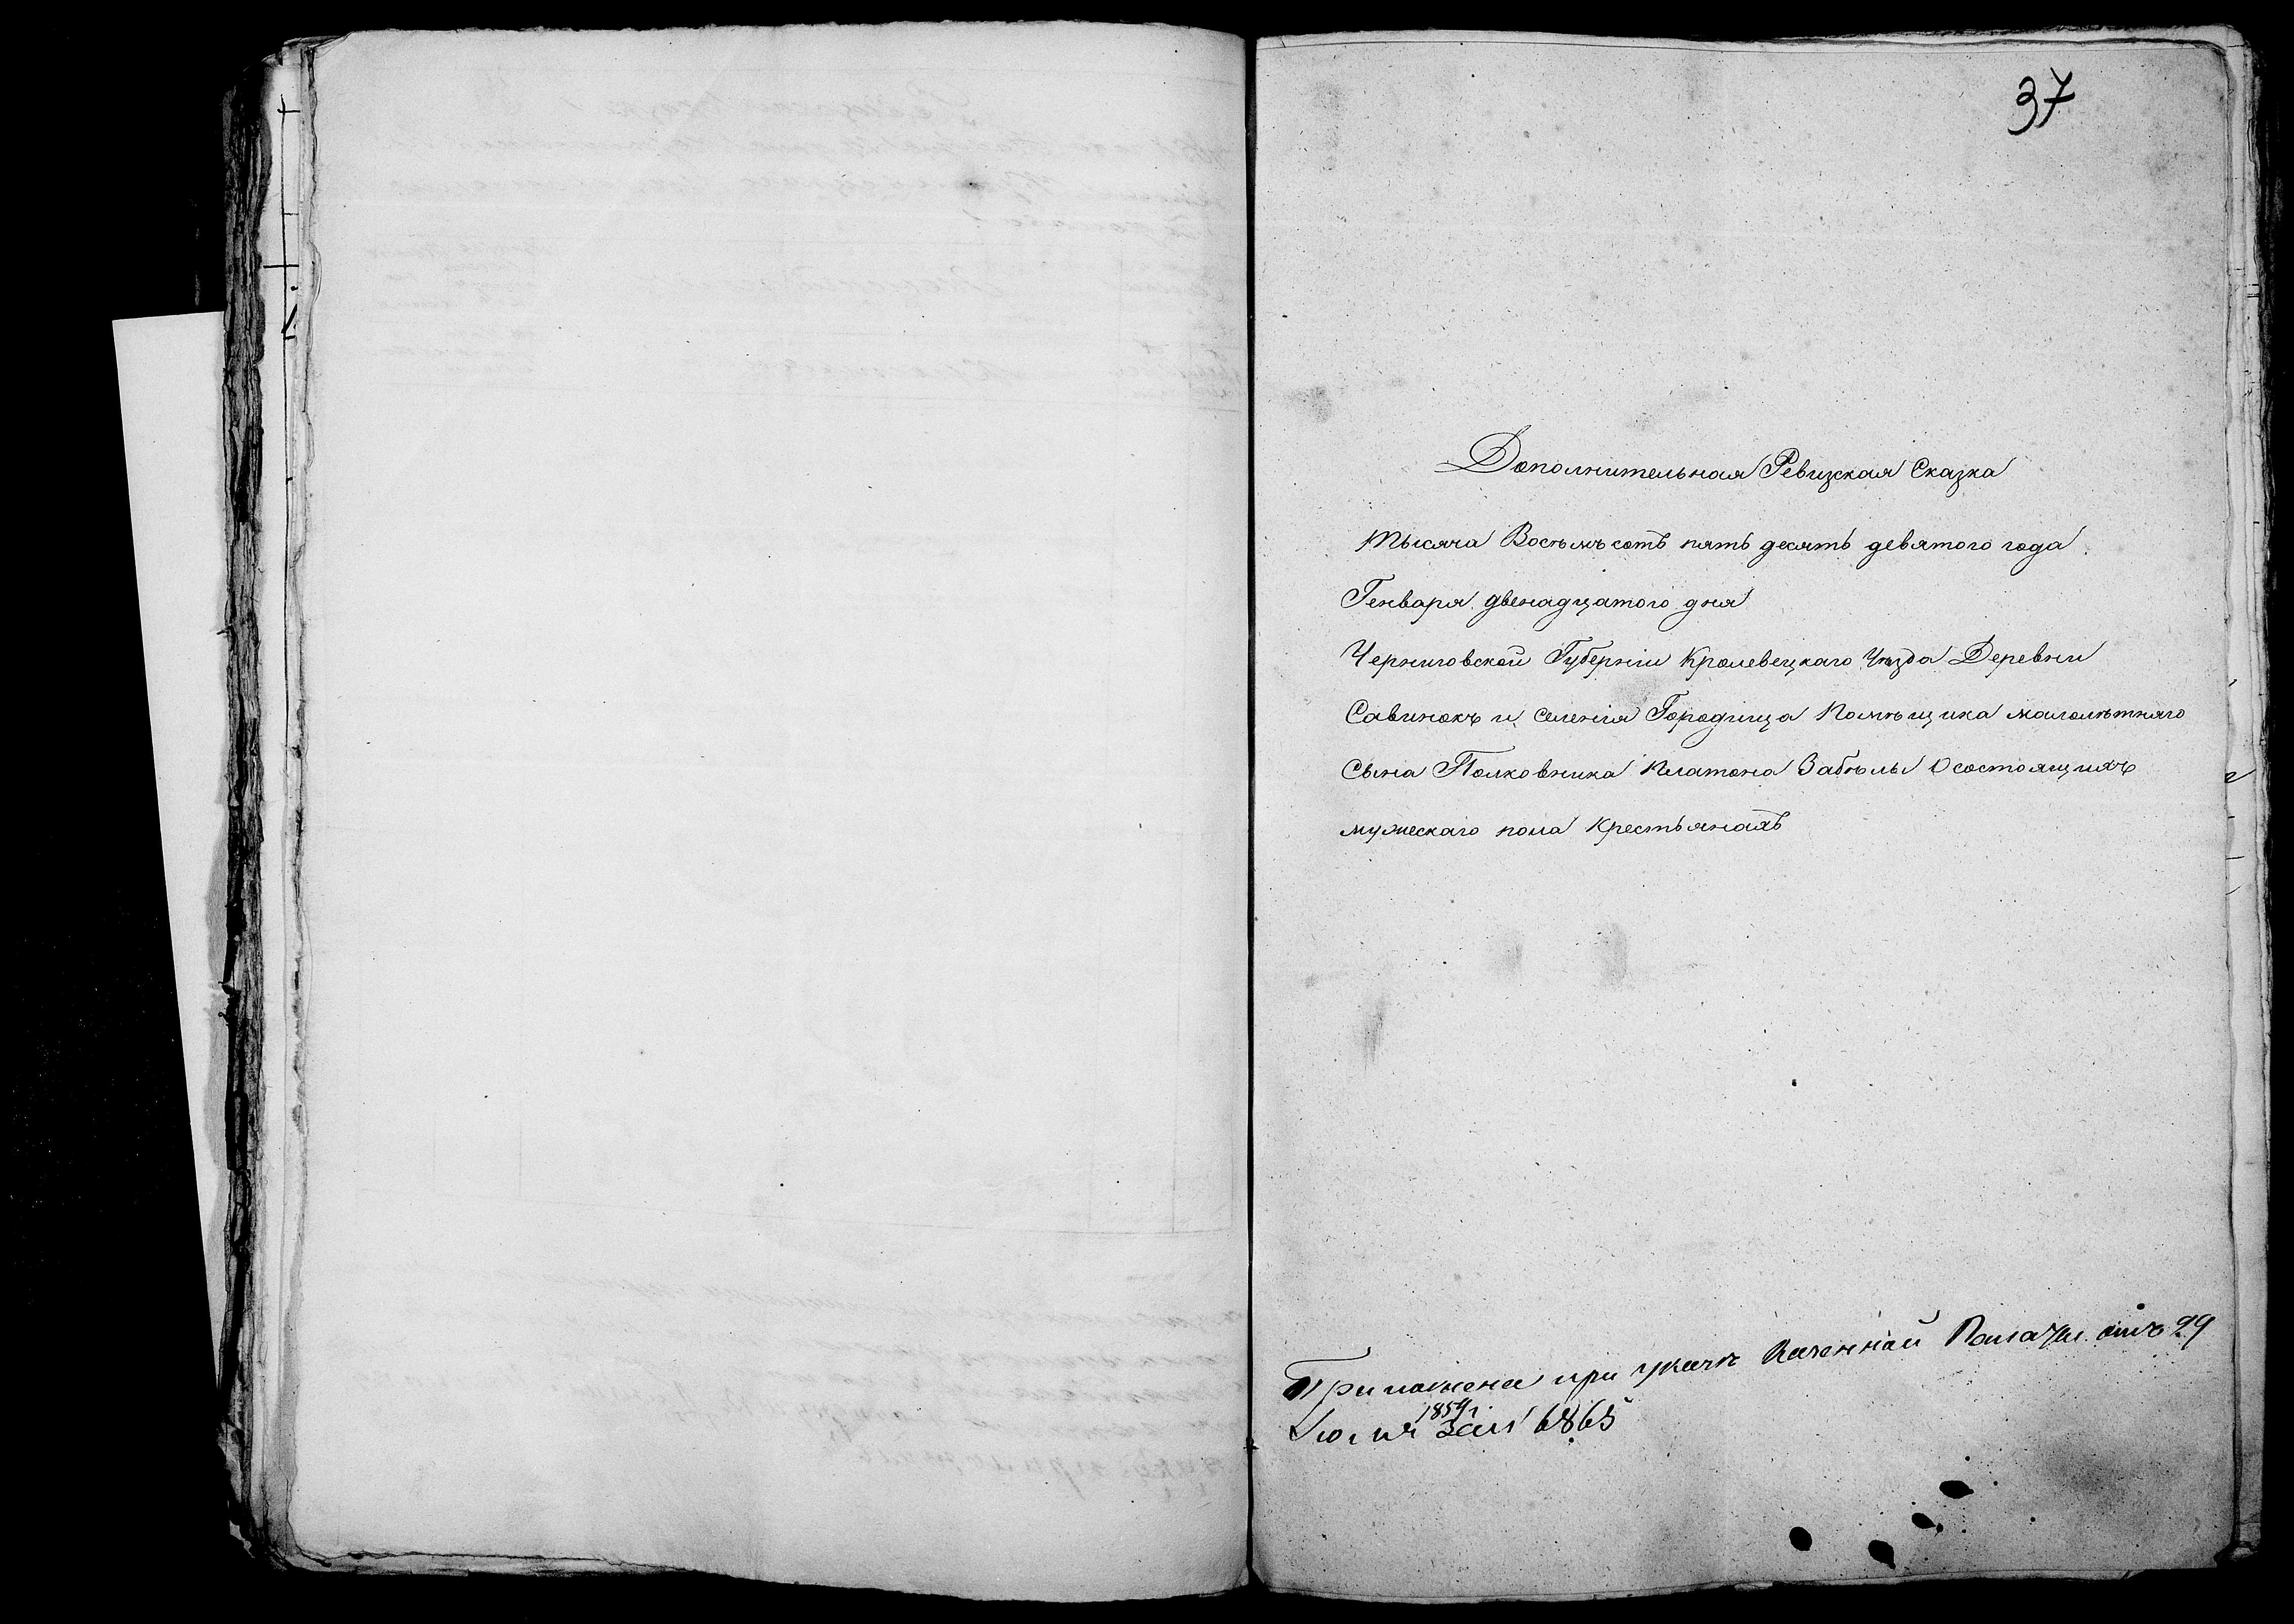 37
Дополнительная Ревизская Сказка
тысяча Восѣмъ сотъ пять десять девятого года
Генваря двенадцатого дня
Черниговской Губерніи Кролевецкаго Уѣзда Деревни
Савинокъ и селенія Городища Помѣщика малолѣтняго
Сына Полковника Платона Забѣлы О состоящихъ
мужескаго пола Крестьянахъ
Приложена при указѣ Казенной Палаты отъ 29
Іюля 1859 г. за № 6865